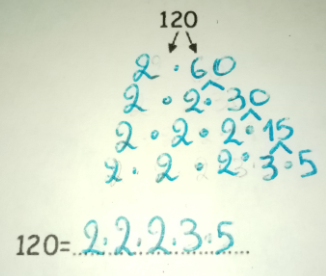 120
2 · 60
2 · 2 · 30
2 · 2 · 2 · 15
2 · 2 · 2 · 3 · 5
120= 2·2·2·3·5